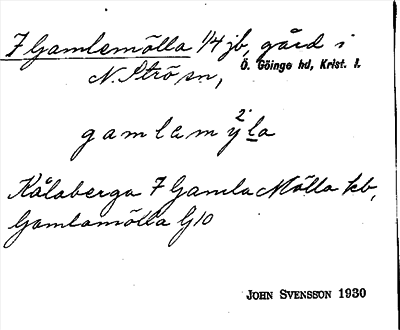 7 Gamlemölla 1/4 jb, gård i
N. Strö sn, Ö. Göinge hd, Krist. l.
gamlamy²la
Kålaberga 7 Gamla Mölla kb,
Gamlamölla G10
JOHN SVENSSON 1930